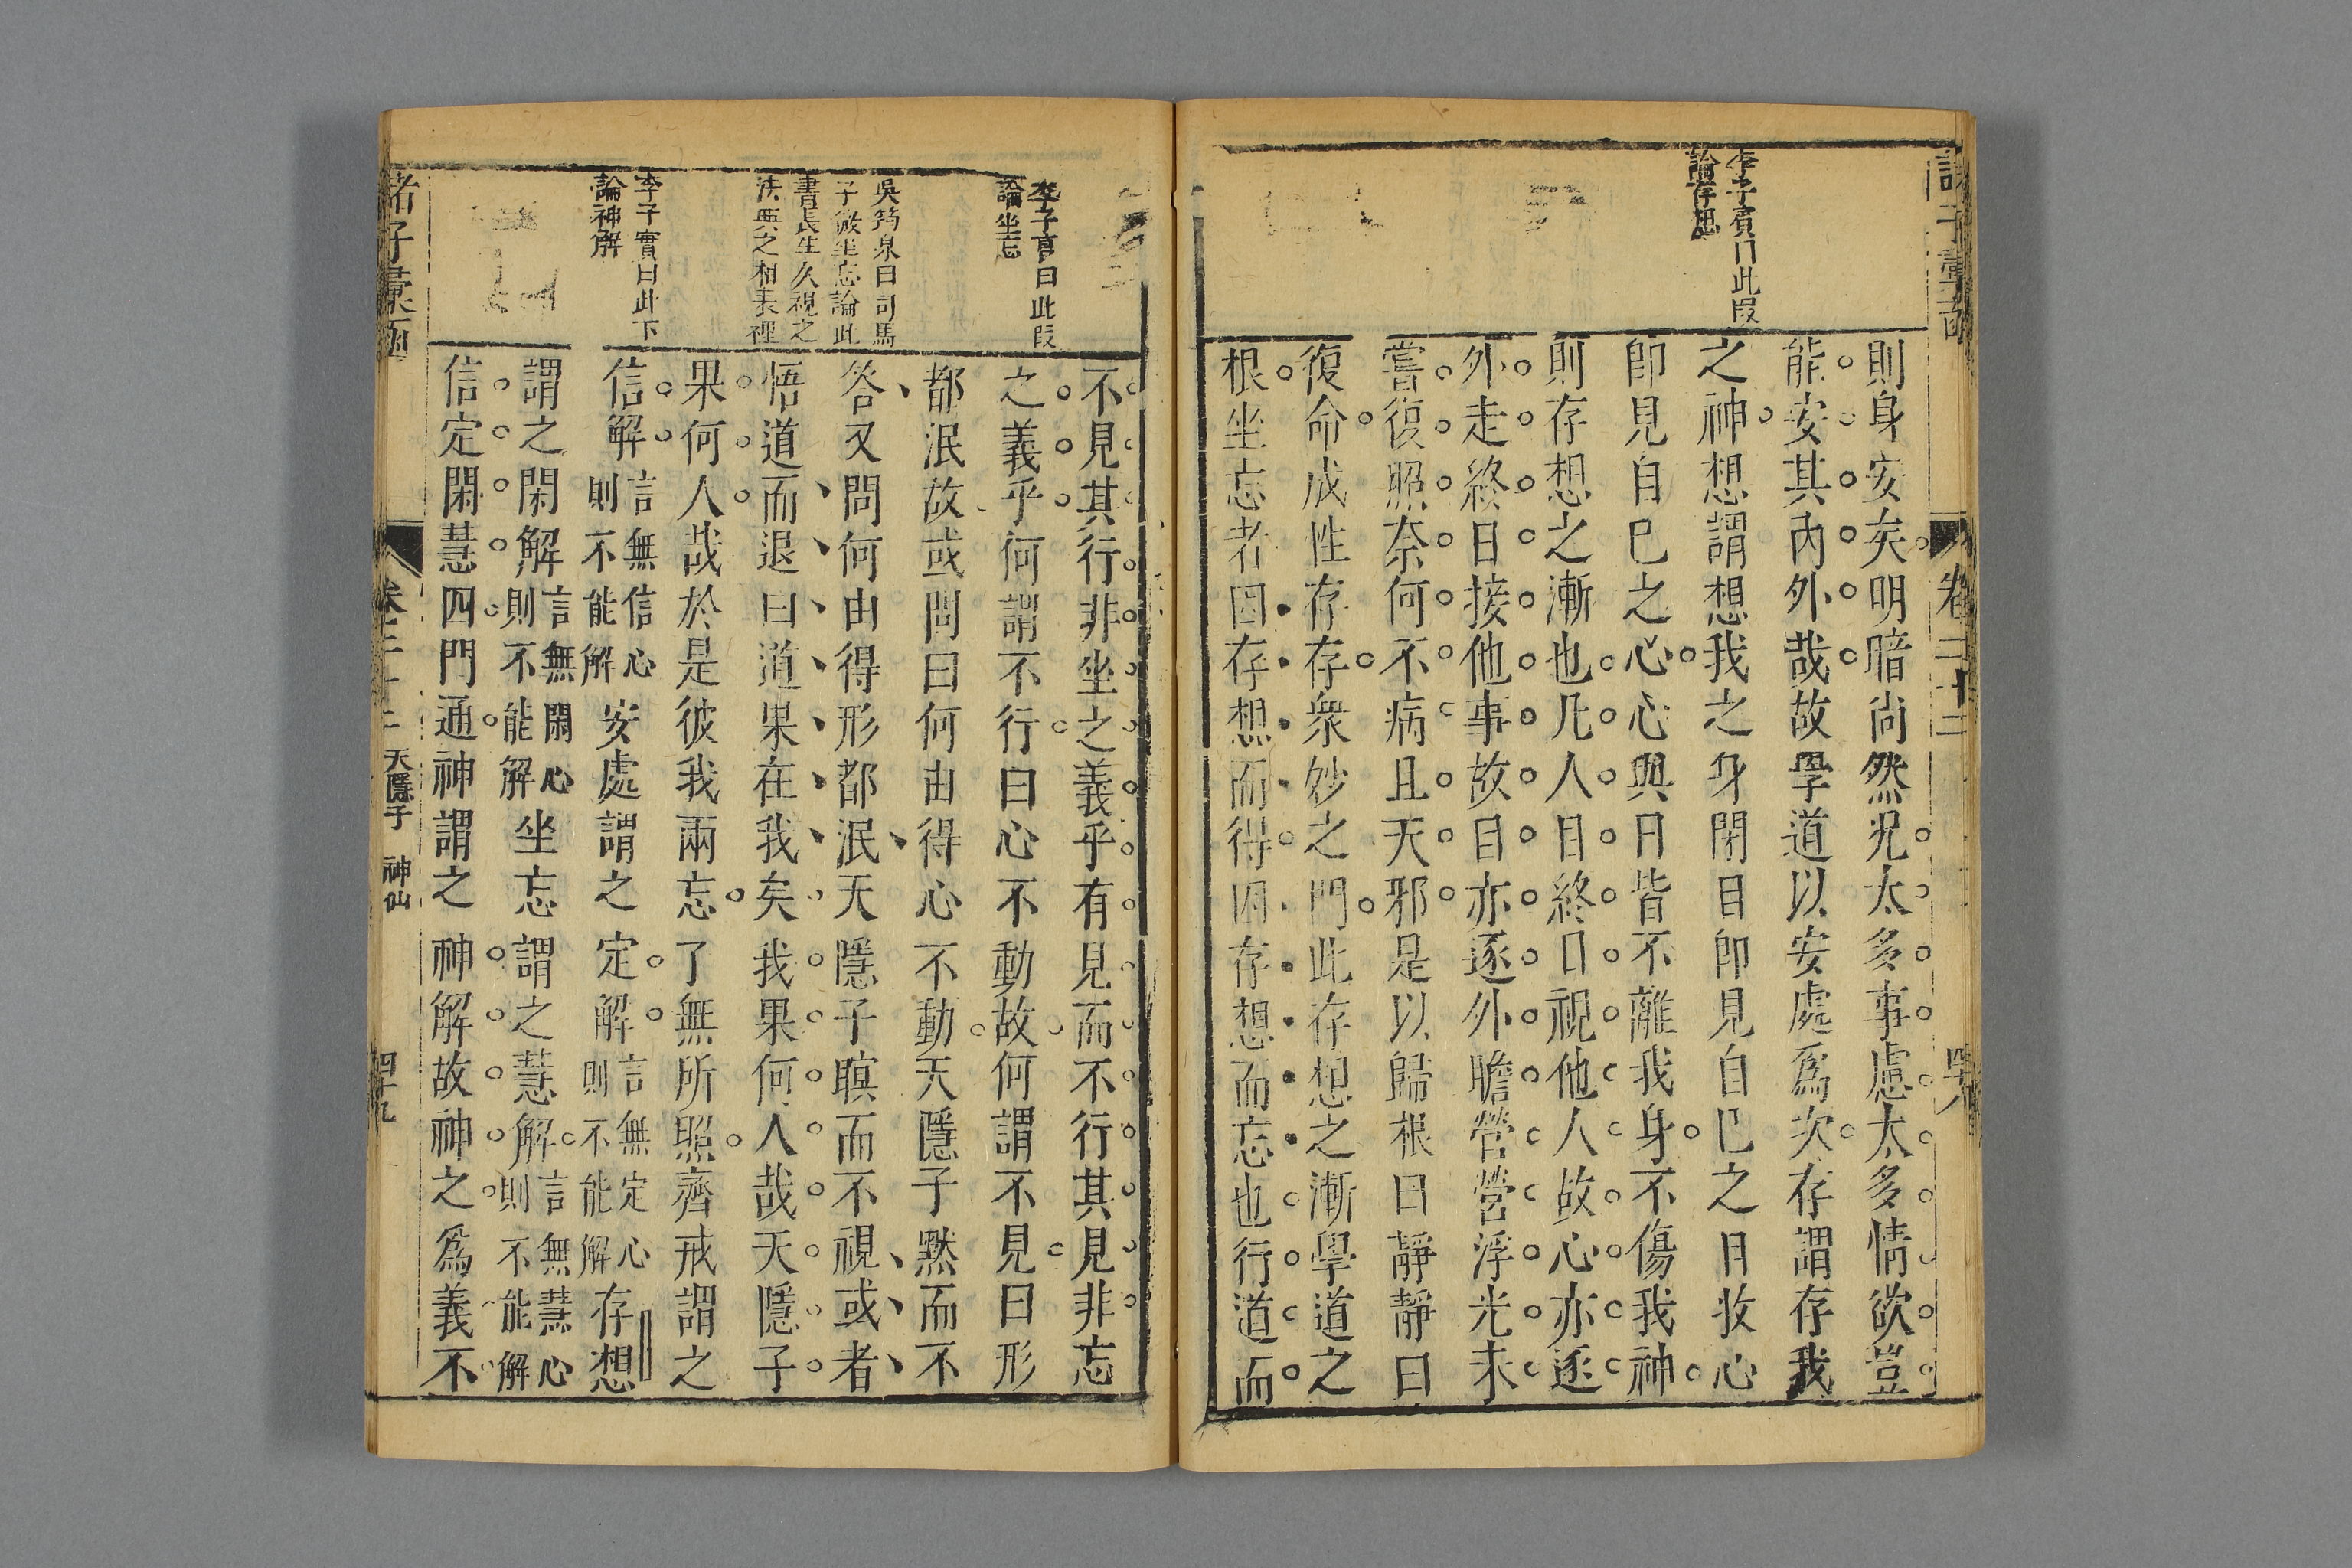 李子實曰此段
論存想
則身安矣明暗尚然況太多事慮太多情欲豈
能安其內外哉故學道以安處爲次存謂存我
之神想謂想我之身閉目卽見自己之目收心
卽見自己之心心與目皆不離我身不傷我神
則存想之漸也凡人目終日視他人故心亦逐
外走終日接他事故目亦逐外瞻營營浮光未
嘗復照奈何不病且夭邪是以歸根曰靜靜曰
復命成性存存衆妙之門此存想之漸學道之
根坐忘者因存想而得因存想而忘也行道而
卷二十二
李子實曰此段
論坐忘
吳筠泉曰司馬
子微坐忘論此
書長生久視之
法與之相表裡
李子實曰此下
論神解
不見其行非坐之義乎有見而不行其見非忘
之義乎何謂不行曰心不動故何謂不見曰形
都泯故或問曰何由得心不動天隱子默而不
答又問何由得形都泯天隱子瞑而不視或者
悟道而退曰道果在我矣我果何人哉天隱子
果何人哉於是彼我兩忘了無所照齊戒謂之
信解言無信心則不能解安處謂之定解言無定心則不能解存想
謂之閑解言無閑心則不能解坐忘謂之慧解言無慧心則不能解
信定閑慧四門通神謂之神解故神之爲義不
諸子彙函
卷二十二
天隱子
神仙
四十九